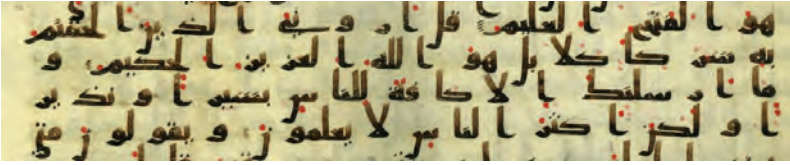 هو الفتح العليم قل ارونى الذين الحقتم
به شركا كلا بل هو الله العزيز الحكيم و
ما ارسلنك الا كافة للناس بشيرا و نذير
ا و لكن اكثر الناس لا يعلمون و يقولون متى